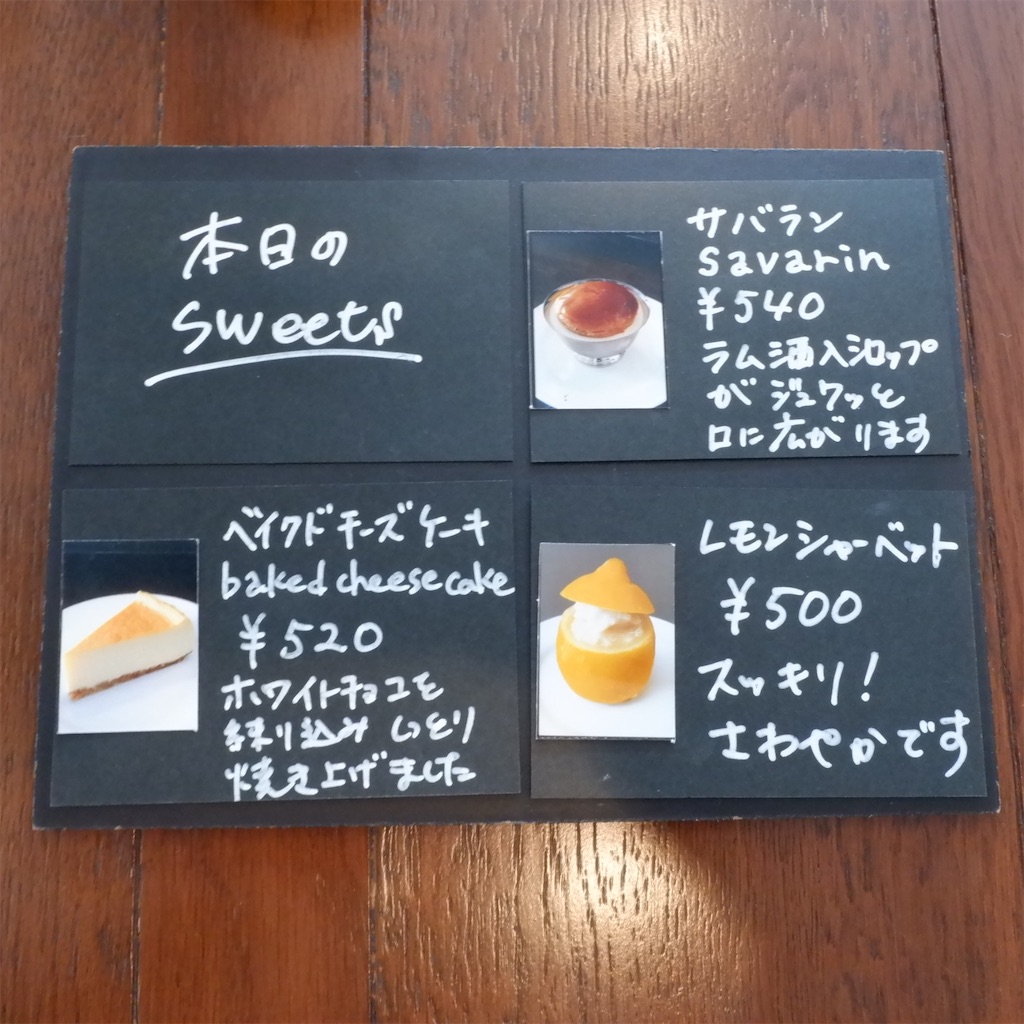 本日の
sweets
サバラン
savarin
¥540
ラム酒入シロップ
がジュワッと
口に広がります
ベイクドチーズケーキ
baked cheese cake
¥520
ホワイトチョコを
練り込みしっとり
焼き上げました
レモンシャーベット
¥500
スッキリ!
さわやかです